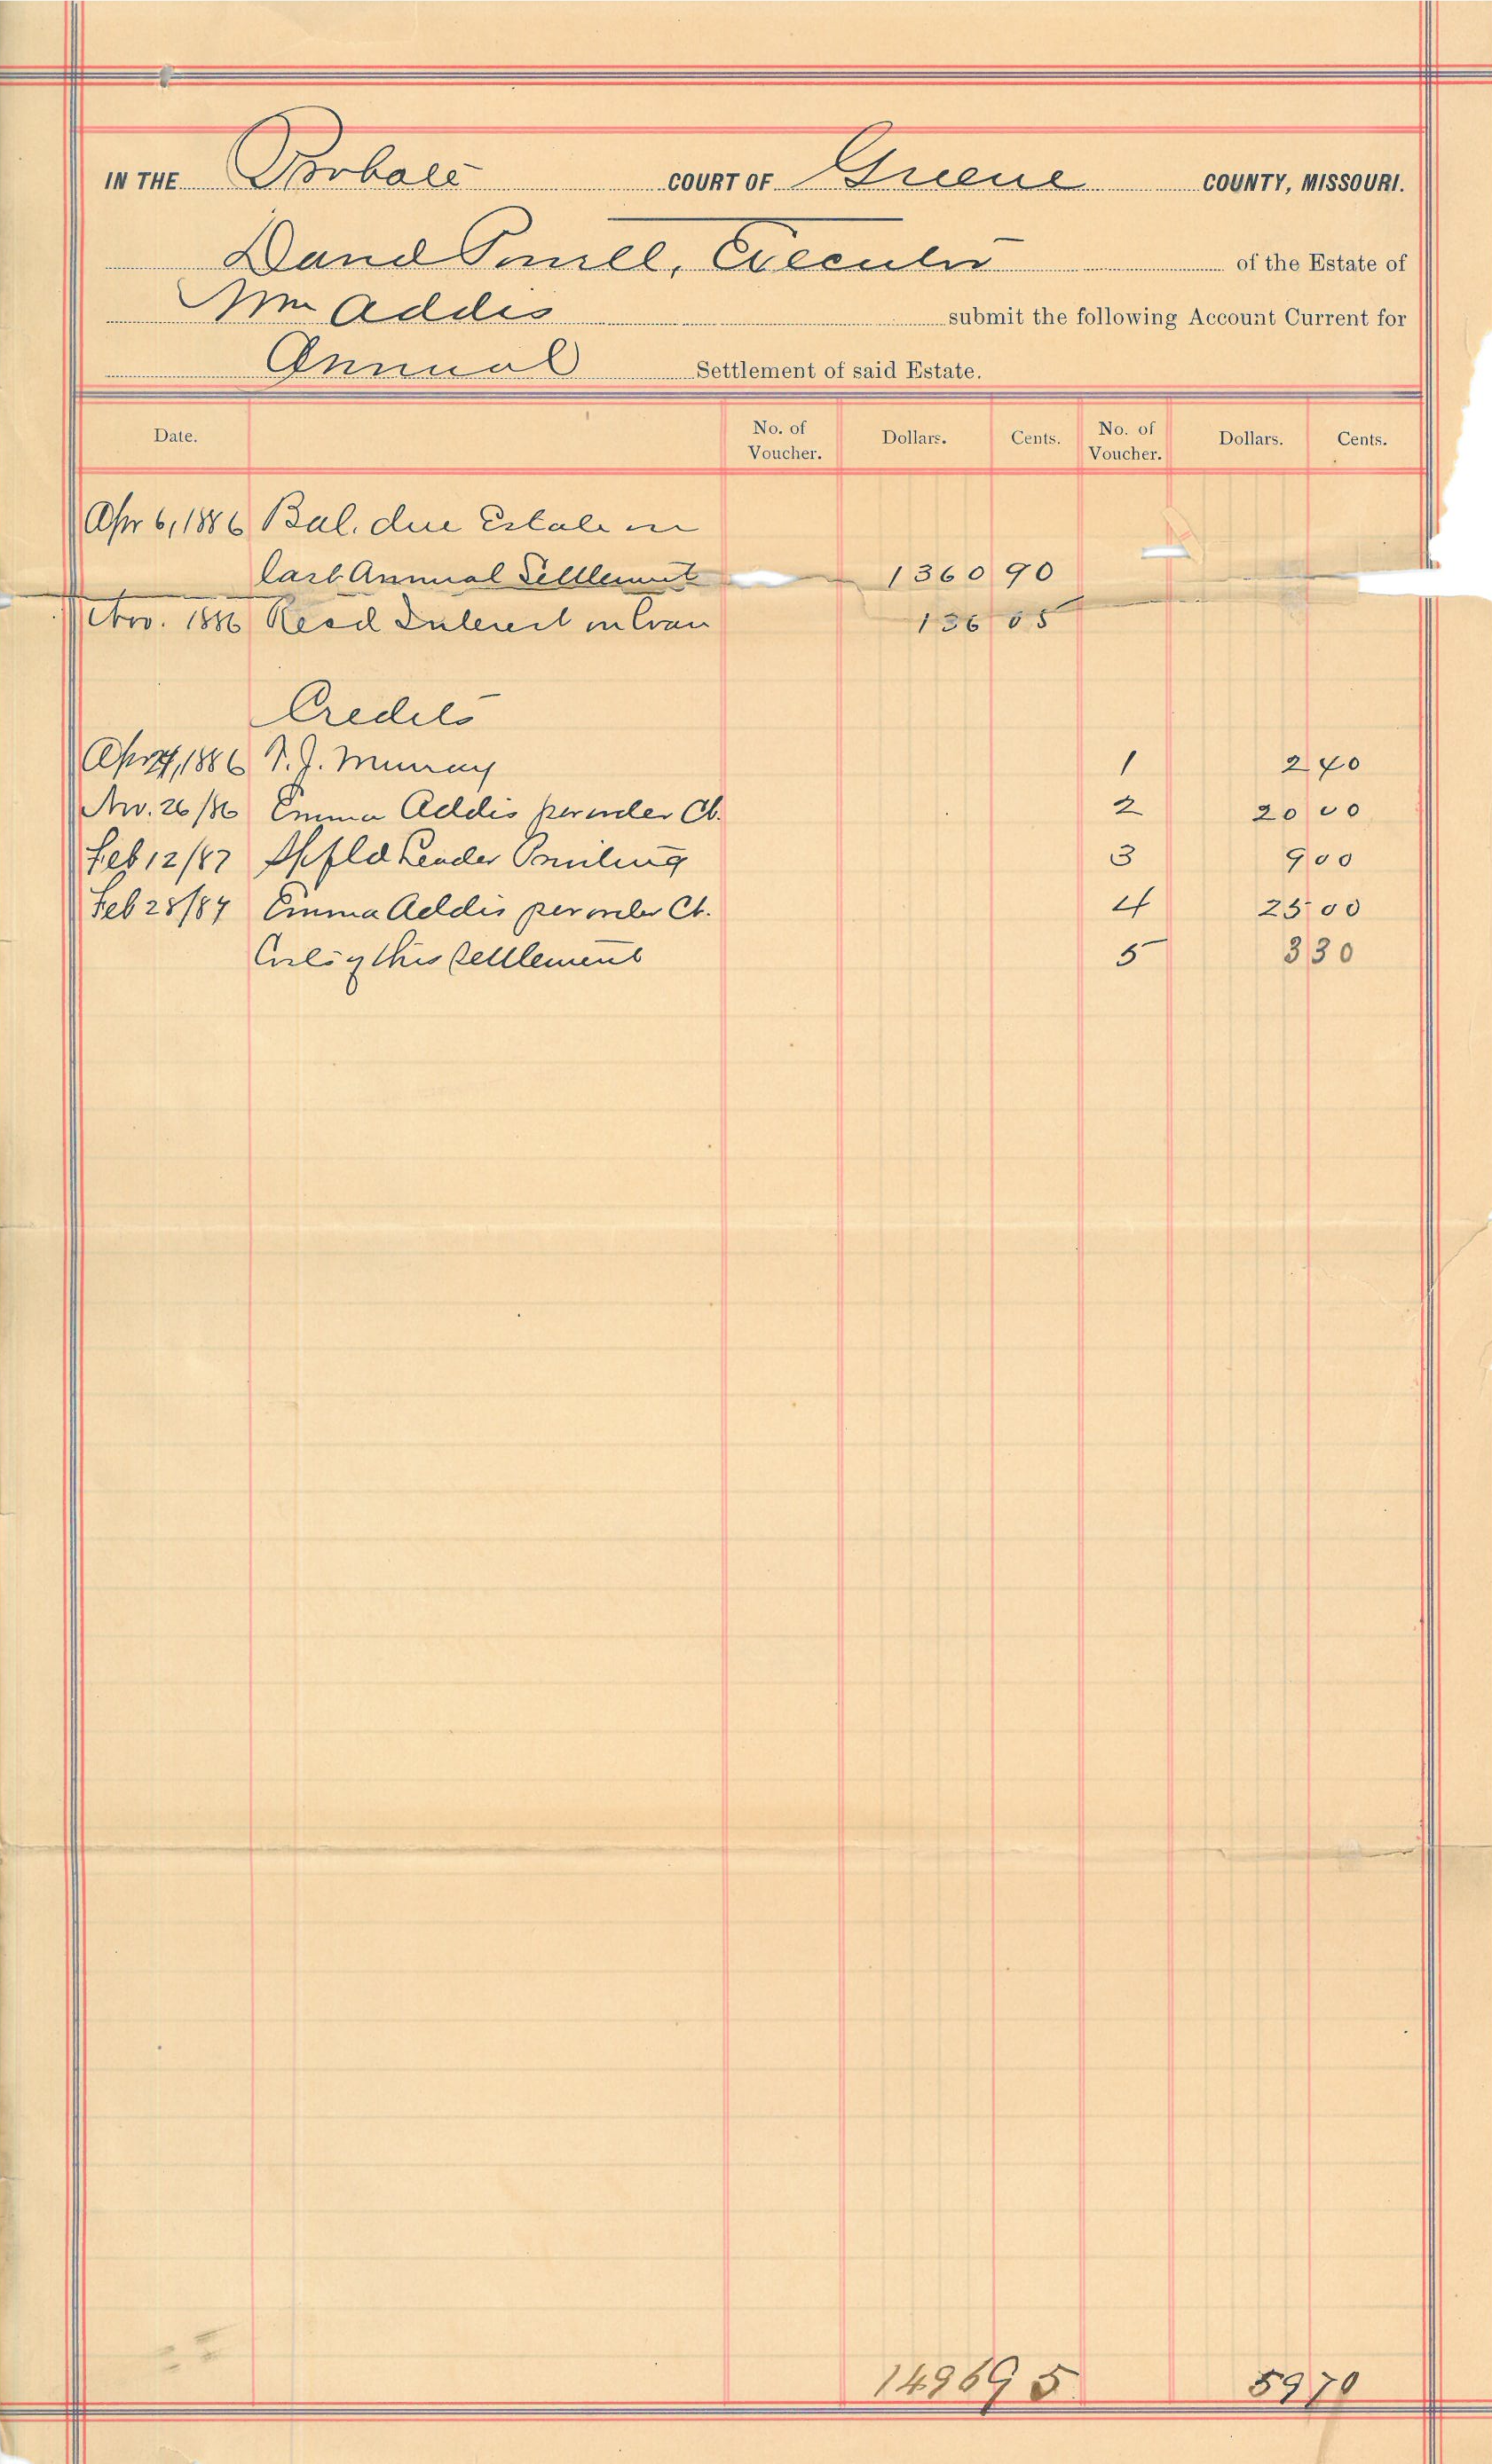 IN THE Probate COURT OF Greene COUNTY, MISSOURI.
David Powell, Executor of the Estate of
Wm Addis submit the following Account Current for
Annual Settlement of said Estate.
Date. No. of Voucher. Dollars. Cents. No. of Voucher. Dollars. Cents.
Apr 6, 1886 Bal. due Estate on
last Annual Settlement 1360 90
Nov. 1886 Recd Interest on loan 136 05
Credits
Apr 1886 T. J. Murray 1 2 40
Nov. 26/86 Emma Addis per order Ct. 2 20 00
Feb 12/87 Spfld Leader Printing 3 9 00
Feb 28/87 Emma Addis per order Ct. 4 25 00
Costs of this settlement 5 3 30
1496 95 59 70